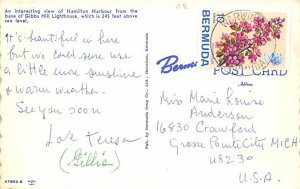 An interesting view of Hamilton Harbour from the
base of Gibbs Hill Lighthouse, which is 245 feet above
sea level.
It's beautiful in here
but we could sure use
a little more sunshine
& warm weather.
See you soon
Love Teresa
(Gillis)
47852-B
Pub. by Bermuda Drug Co., Ltd., Hamilton, Bermuda
BERMUDA
Bermu
POST CARD
Address
Miss Marie Louise
Anderson
16830 Crawford
Grosse Pointe City MICH
48230
U.S.A.